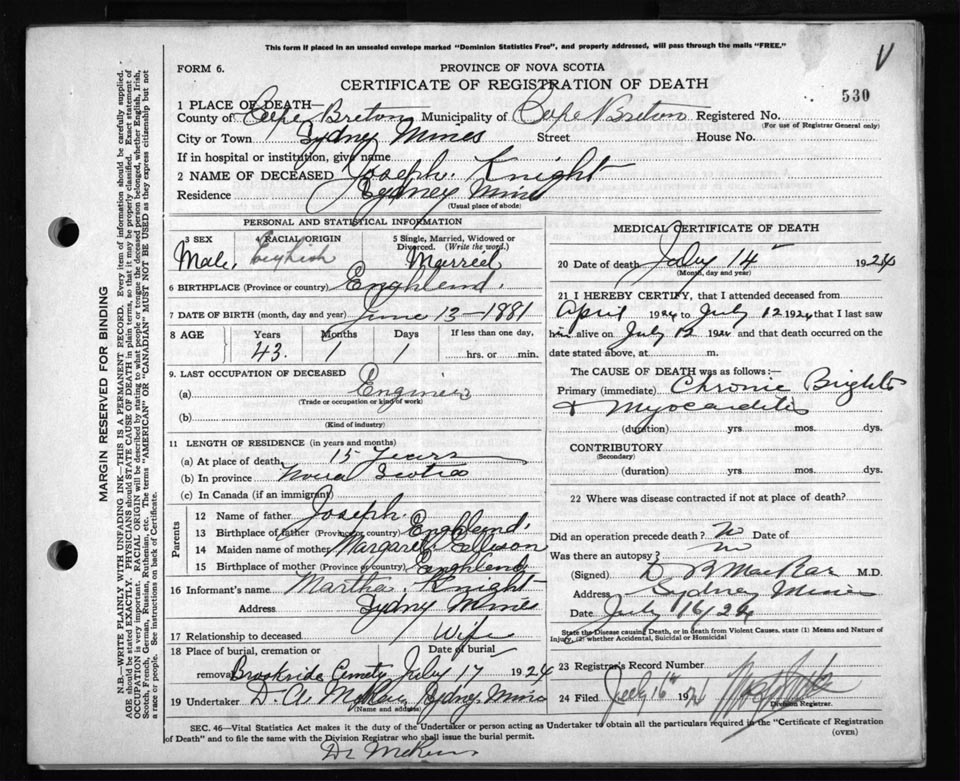 This form if placed in an unsealed envelope marked "Dominion Statistics Free", and properly addressed, will pass through the mails "FREE."
V
FORM 6.
PROVINCE OF NOVA SCOTIA
CERTIFICATE OF REGISTRATION OF DEATH
530
1 PLACE OF DEATH—
County of Cape Breton Municipality of Cape Breton Registered No.
(For use of Registrar General only)
City or Town Sydney Mines Street House No.
If in hospital or institution, give name
2 NAME OF DECEASED Joseph Knight
Residence Sydney Mines
(Usual place of abode)
PERSONAL AND STATISTICAL INFORMATION
3 SEX 4 RACIAL ORIGIN 5 Single, Married, Widowed or Divorced. (Write the word.)
Male. English Married
6 BIRTHPLACE (Province or country) England.
7 DATE OF BIRTH (month, day and year) June 13—1881
8 AGE Years Months Days If less than one day,
43. 1 1 hrs. or min.
9. LAST OCCUPATION OF DECEASED
(a) Engineer
(Trade or occupation or kind of work)
(b)
(Kind of industry)
11 LENGTH OF RESIDENCE (in years and months)
(a) At place of death 15 Years
(b) In province Nova Scotia
(c) In Canada (if an immigrant)
Parents
12 Name of father Joseph.
13 Birthplace of father (Province or country) England.
14 Maiden name of mother Margaret Ellison
15 Birthplace of mother (Province or country) England
16 Informant's name Martha Knight
Address Sydney Mines
17 Relationship to deceased Wife
18 Place of burial, cremation or Date of burial
removal Brookside Cemety July 17 1924
19 Undertaker Sydney Mines
(Name and address)
MEDICAL CERTIFICATE OF DEATH
20 Date of death July 14 1924
(Month, day and year)
21 I HEREBY CERTIFY, that I attended deceased from
April 1924 to July 12 1924 that I last saw
him alive on July 12 1924 and that death occurred on the
date stated above, at m.
The CAUSE OF DEATH was as follows:—
Primary (immediate) Chronic Brights
& Myocarditis
(duration) yrs mos. dys.
CONTRIBUTORY
(Secondary)
(duration) yrs. mos. dys.
22 Where was disease contracted if not at place of death?
Did an operation precede death? No Date of
Was there an autopsy? No
(Signed) M.D.
Address Sydney Mines
Date July 16/24
State the Disease causing Death, or in death from Violent Causes, state (1) Means and Nature of
Injury, (2) whether Accidental, Suicidal or Homicidal
23 Registrar's Record Number
24 Filed July 16th 1924
Division Registrar.
SEC. 46—Vital Statistics Act makes it the duty of the Undertaker or person acting as Undertaker to obtain all the particulars required in the "Certificate of Registration
of Death" and to file the same with the Division Registrar who shall issue the burial permit.
(OVER)
MARGIN RESERVED FOR BINDING
N.B.—WRITE PLAINLY WITH UNFADING INK—THIS IS A PERMANENT RECORD. Every item of information should be carefully supplied.
AGE should be stated EXACTLY. PHYSICIANS should STATE CAUSE OF DEATH in plain terms, so that it may be properly classified. Exact statement of
OCCUPATION is very important. RACIAL ORIGIN will be described by stating to what people or tongue the deceased person belonged, whether English, Irish,
Scotch, French, German, Russian, Ruthenian, etc. The terms "AMERICAN" OR "CANADIAN" MUST NOT BE USED as they express citizenship but not
a race or people. See instructions on back of Certificate.